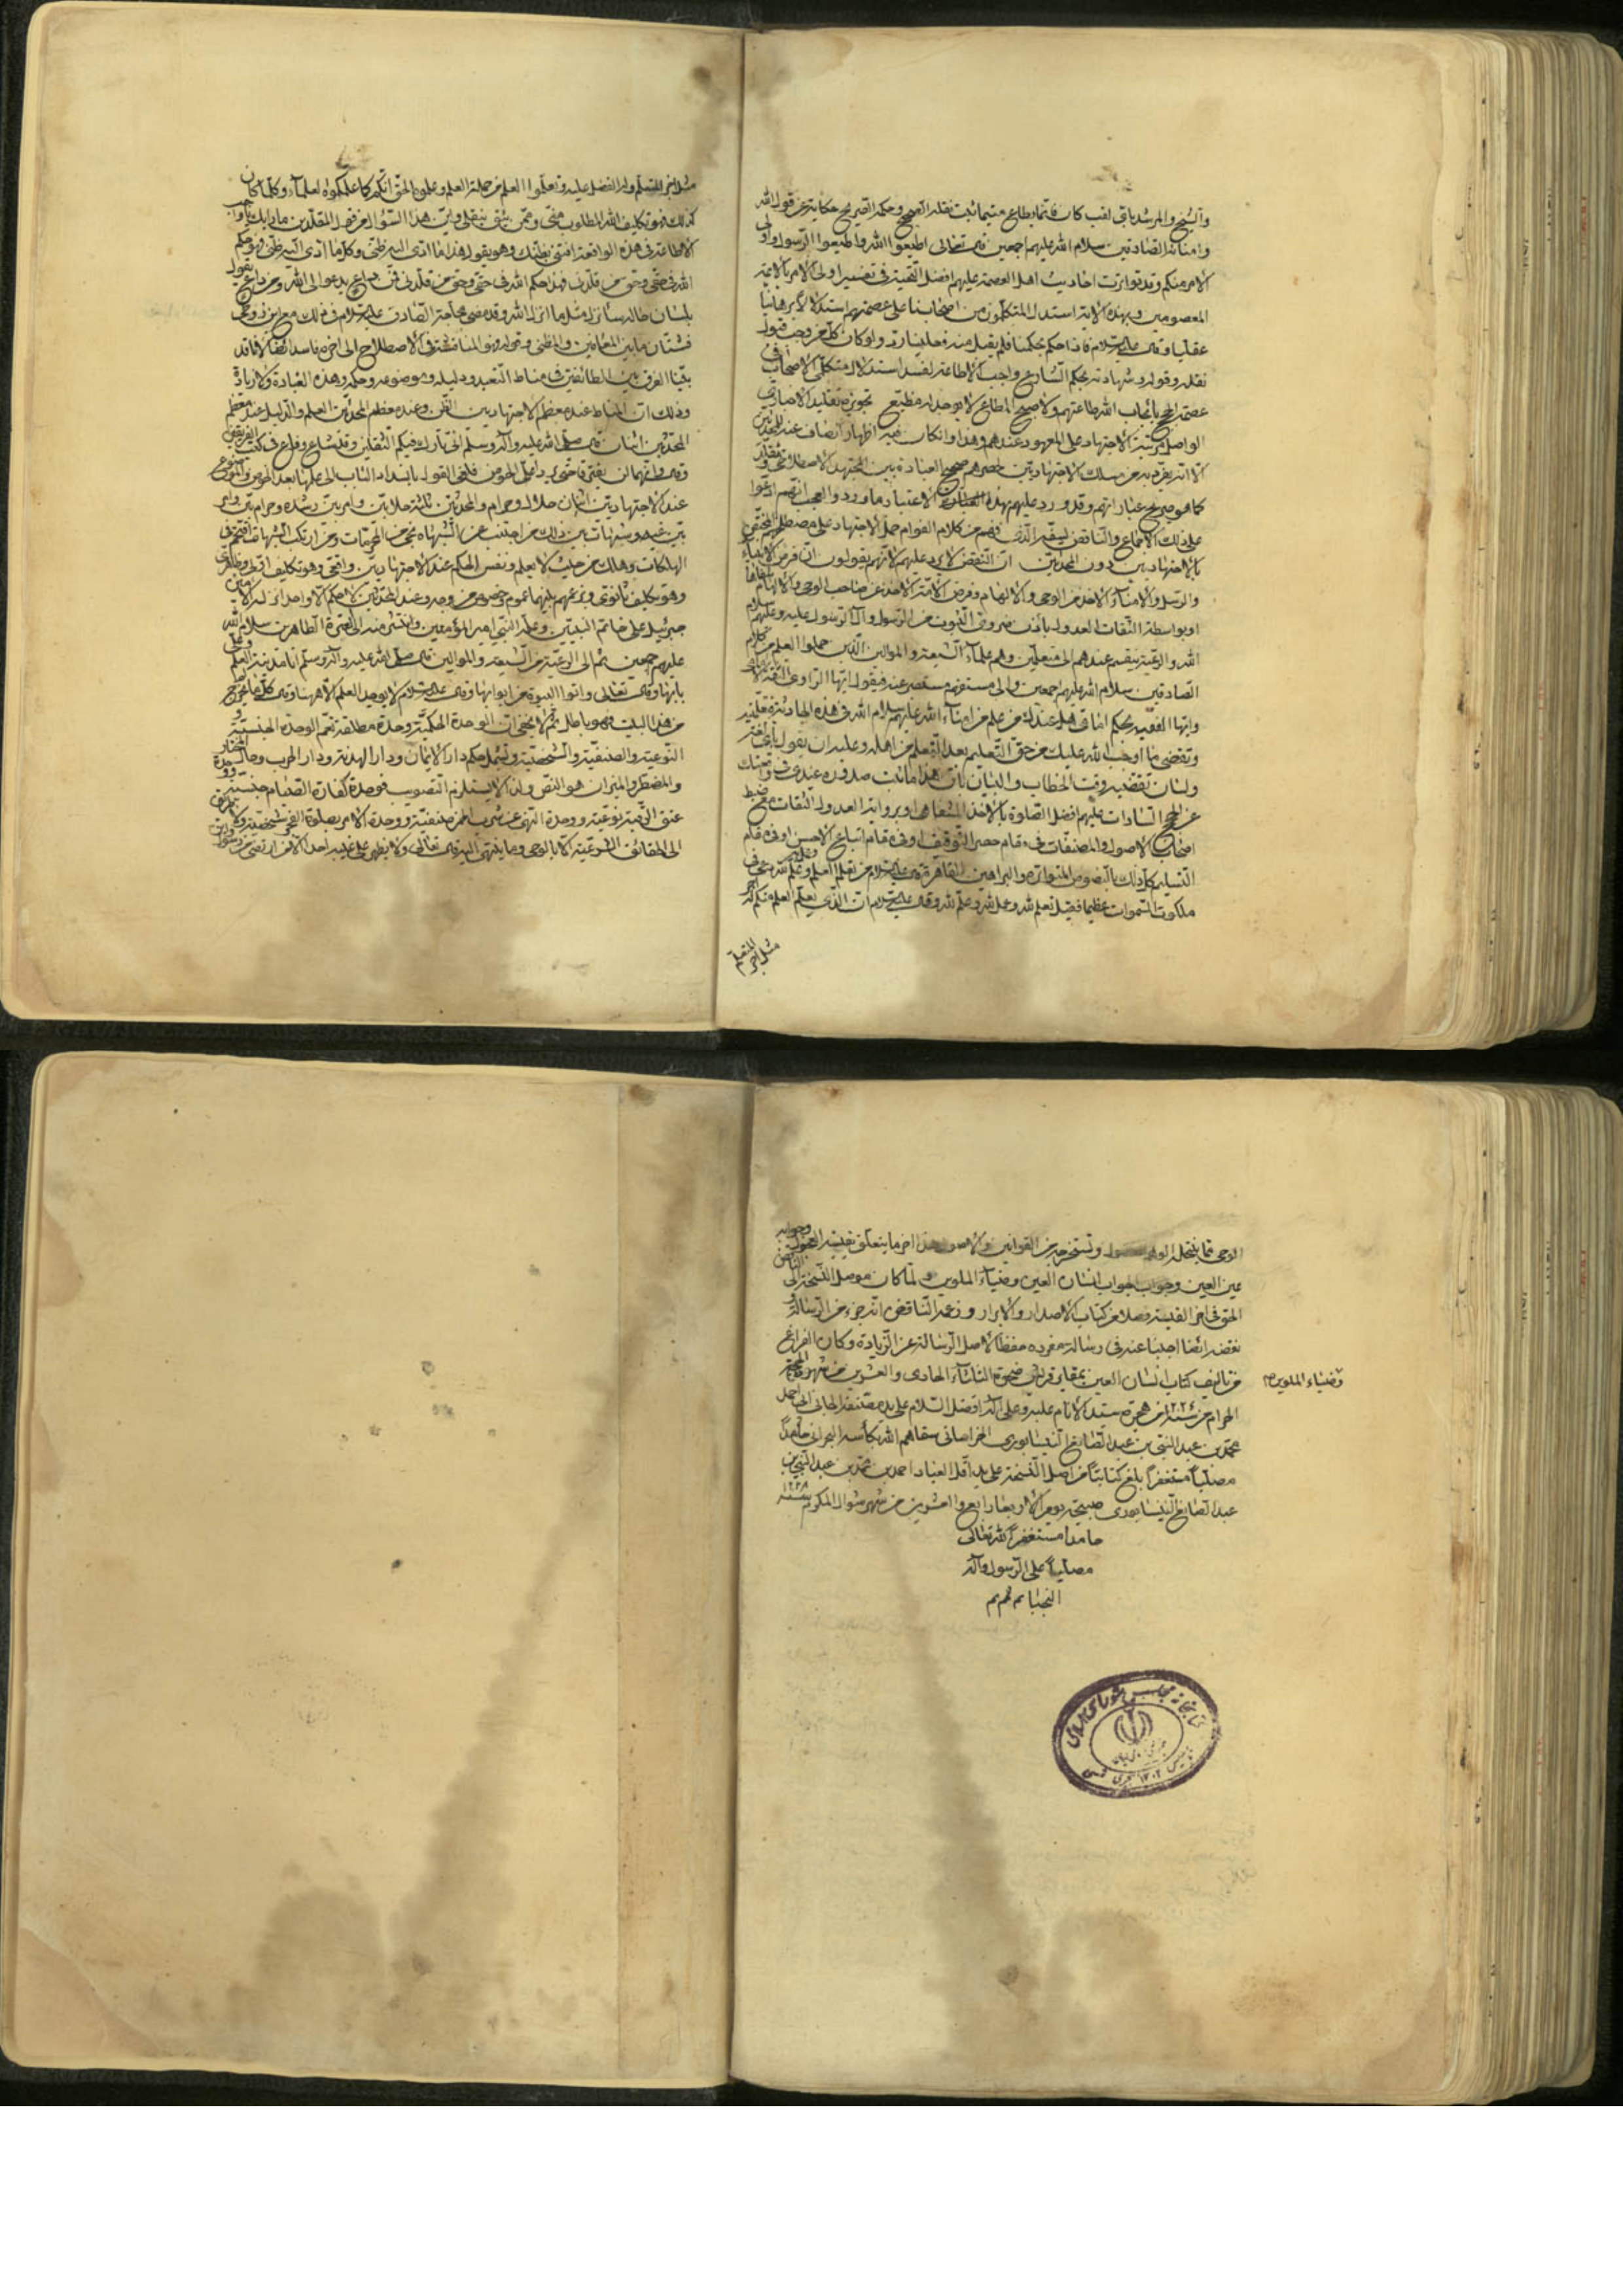 والشيخ والمرشد باي لقب كان فانما يطاع فيما ثبت نقله الصحيح وحكمه الصريح حكاية عن قول الله
وامنائه الصادقين سلام الله عليهم اجمعين قال تعالى اطيعوا الله واطيعوا الرسول واولي
الامر منكم وقد تواترت احاديث اهل العصمة عليهم افضل التحية في تفسير اولى الامر بالائمة
المعصومين وبهذه الاية استدل المتكلمون من اصحابنا على عصمتهم استدلالا برهانيا
عقليا وقال عليه السلام فاذا حكم بحكمنا فلم يقبل منه فعلينا رد ولو كان كل من وجب قبول
نقله وقوله وشهادته بحكم الشارع واجب الاطاعة لفسد استدلال متكلمي الاصحاب
عصمة الحجج بايجاب الله طاعتهم ولا صحيح المطاع لا يوجد له مطيع تجويزه تقليد الاخباري
الواصل مرتبة الاجتهاد على المعهود عندهم وهذا وان كان فيه اظهار انصاف عند المحدثين
الا انه يفرد به من سلك الاجتهاديين لحصرهم صحيح العبادة بين المجتهد الاصطلاحي ومقلد
كما هو صريح عباراتهم وقد ورد عليهم بهذا الاعتبار ما ورد والعجب انهم ادعوا
على ذلك الاجماع والناقض لسقم الذي فهم من كلام القوام حمل الاجتهاد على مصطلحهم المختص
بالاجتهاديين دون المحدثين ان النقض لا يرد عليهم لانهم يقولون ان فرض الانبياء
والرسل والامناء الاخذ من الوحي والالهام وفرض الائمة الاخذ عن صاحب الوحي والالهام شفاها
او بواسطة الثقات العدول باذن ضروري الثبوت من الرسول وال الرسول عليه وعليهم سلام
الله والرعية ينقسم عندهم الى متعلمين وهم علماء الشيعة والموالين الذين حملوا العلم من كلام
الصادقين سلام الله عليهم اجمعين والى مستفهم مستبصر عنه فيقول ايها الراوي الثقة
وايها الفقيه بحكم امامي هل عندك من علم من امناء الله عليهم سلام الله في هذه الحادثة فعلمنيه
وتقضي ما اوجب الله عليك من حق التعليم بعد التعلم من اهله وعليه ان يقول باي لغة
ولسان يقتضيه وقت الخطاب والبيان بان هذا ما ثبت صدوره عندي في واقعتك
عن الحجج السادات عليهم افضل الصلوة بالاخذ الشفاهي او برواية العدول الثقات مع ضبط
اصحاب الاصول والمصنفات في مقام حصر التوقيف او في مقام اتباع الاحسن او في مقام
التسليم كل ذلك بالنصوص المتواترة والبراهين القاهرة قال عليه السلام من تعلم العلم وعمل به وعلم لله دعي في
ملكوت السموات عظيما فقيل تعلم لله وعمل لله وعلم لله وقال عليه السلام ان الذي يعلم العلم منكم له اجر
مثل اجر المتعلم
مثل اجر المتعلم وله الفضل عليه وتعلموا العلم من حملة العلم وعلموه اخوانكم كما علمكموه العلماء وكلما كان
كذلك فهو تكليف الله المطلوب مني وممن يثق بنقلي واين هذا السؤال من قول المقلدين ما رايك يا واجب
الاطاعة في هذه الواقعة افتني بظنك وهو يقول هذا ما ادى اليه ظني وكل ما ادى اليه ظني فهو حكم
الله في حقي وحق من قلدني فهذا حكم الله في حقي وحق من قلدني فمن داع يدعو الى الله ومن داع يقول
بلسان حاله سانزل مثل ما انزل الله وقد مضى محاجة الصادق عليه السلام في ذلك مع ابن
فشتان ما بين المقامين والمظني وقوله ونحو المناقشة في الاصطلاح الى اخره فاسد ايضا لانا قد
بينا الفرق بين الطائفتين في مناط التعبد ودليله وموضوعه وحكمه وهذه العبادة ولا زيادة
وذلك ان المناط عند معظم الاجتهاديين الظن وعند معظم المحدثين العلم والدليل عند معظم
المحدثين اثنان قال صلى الله عليه وآله وسلم اني تارك فيكم الثقلين وقد شاع وذاع في كتب الفريقين
وقال وانهما لن يفترقا حتى يردا علي الحوض فلغى القول بانسداد الباب الى علمها بعد الحوض والموضوع
عند الاجتهاديين اثنان حلال وحرام والمحدثين ثلثة حلال بين وامر بين رشده وحرام بين وامر
بين غيه وشبهات بين ذلك من اجتنب عن الشبهات نجى من المحرمات ومن ارتكب الشبهات اقتحم في
الهلكات وهلك من حيث لا يعلم ونفس الحكم عند الاجتهاديين واقعي وهو تكليف اولي وظاهري
وهو تكليف ثانوي وبزعمهم بينهما عموم وخصوص من وجه وعند المحدثين لا حكم الا واحد انزله الامين
جبرئيل على خاتم النبيين وعلمه النبي امير المؤمنين وانتشر منه الى العترة الطاهرين سلام الله
عليهم اجمعين ثم الى الرعية من الشيعة والموالين قال صلى الله عليه وآله وسلم انا مدينة العلم وعلي
بابها وقال تعالى واتوا البيوت من ابوابها وقال عليه السلام لا يوجد العلم الا هيهنا وقال كل ما لم يخرج
من هذا البيت فهو باطل ثم لا يخفى ان الوحدة الحكمية وحدة مطلقة تعم الوحدة الجنسية و
النوعية والصنفية والشخصية وتشمل حكم دار الايمان ودار الهدنة ودار الحرب وحال المختار
والمضطر والميزان هو النص وان لا يستلزم التصويب فوحدة كفارة الصيام جنسية ووحدة
عتق الرقبة نوعية ووحدة النهي عن شرب الخمر صنفية ووحدة الامر بصلوة الفجر شخصية
الى الحقائق الشرعية الا بالوحي وما ينتهي اليه قال تعالى ولا يظهر على غيبه احدا الا من ارتضى من رسول
الوحي مما ينتحله وتستخرجه من القوانين والاصول هذا اخر ما يتعلق بتفسير
عين العين وجواب الجواب لانسان العين وضياء الملوين ولما كان موصل النسخة الى
الحق في اخر الفلسفة فصلا من كتاب الاصدار والايراد وزعم الناقض انه جزء من الرسالة و
نقضه ايضا اجبنا عنه في رسالة مفرده حفظا لاصل الرسالة عن الزيادة وكان الفراغ
من تاليف كتاب انسان العين بمقابر قريش ضحوة الثلثاء الحادى والعشرين من شهر محرم
وضياء الملوين صح
الحرام من سنة ١٢٢٤ من هجرة سيد الانام عليه وعلى آله افضل السلام على يد مصنفه الجاني ابي احمد
محمد بن عبد النبي بن عبد الصانع النيسابوري الخراساني سقاهم الله بكأس البحراني حامدا
مصليا مستغفرا بلغ كتابتا من اصل النسخة على يد اقل العباد احمد بن محمد بن عبد النبي بن
عبد الصانع النيسابوري صبيحة يوم الاربعا رابع والعشرين من شهر شوال المكرم سنة ١٢٢٨
حامدا مستغفرا لله تعالى
مصليا على الرسول وآله
النجبا تم تم تم
كتابخانه مجلس شورای اسلامی
تاسیس ۱۳۰۲ هجری شمسی